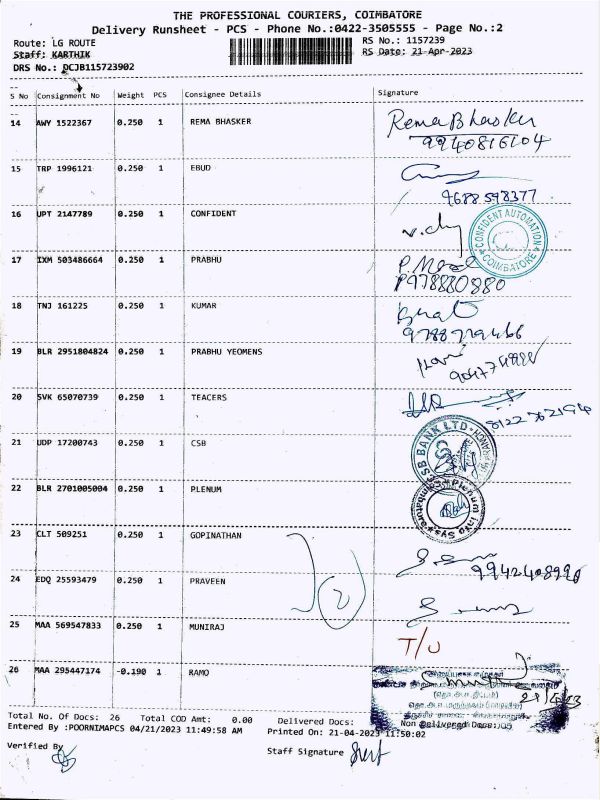 THE PROFESSIONAL COURIERS, COIMBATORE
Delivery Runsheet - PCS - Phone No.:0422-3505555 - Page No.:2
Route: LG ROUTE RS No.: 1157239
Staff: KARTHIK RS Date: 21-Apr-2023
DRS No.: DCJB115723902
S No Consignment No Weight PCS Consignee Details Signature
14 AWY 1522367 0.250 1 REMA BHASKER Rema Bhasker
9940816104
15 TRP 1996121 0.250 1 EBUD
9688598377
16 UPT 2147789 0.250 1 CONFIDENT
CONFIDENT AUTOMATION COIMBATORE
17 IXM 503486664 0.250 1 PRABHU
18 TNJ 161225 0.250 1 KUMAR
19 BLR 2951804824 0.250 1 PRABHU YEOMENS
20 SVK 65070739 0.250 1 TEACERS
21 UDP 17200743 0.250 1 CSB
CSB BANK LTD
22 BLR 2701005004 0.250 1 PLENUM
Plenum Info Sys
23 CLT 509251 0.250 1 GOPINATHAN
9942408996
24 EDQ 25593479 0.250 1 PRAVEEN
2
25 MAA 569547833 0.250 1 MUNIRAJ T/U
26 MAA 295447174 -0.190 1 RAMO
21/4/23
Total No. Of Docs: 26 Total COD Amt: 0.00 Delivered Docs: Non Delivered Docs:
Entered By :POORNIMAPCS 04/21/2023 11:49:58 AM Printed On: 21-04-2023 11:50:02
Verified By Staff Signature